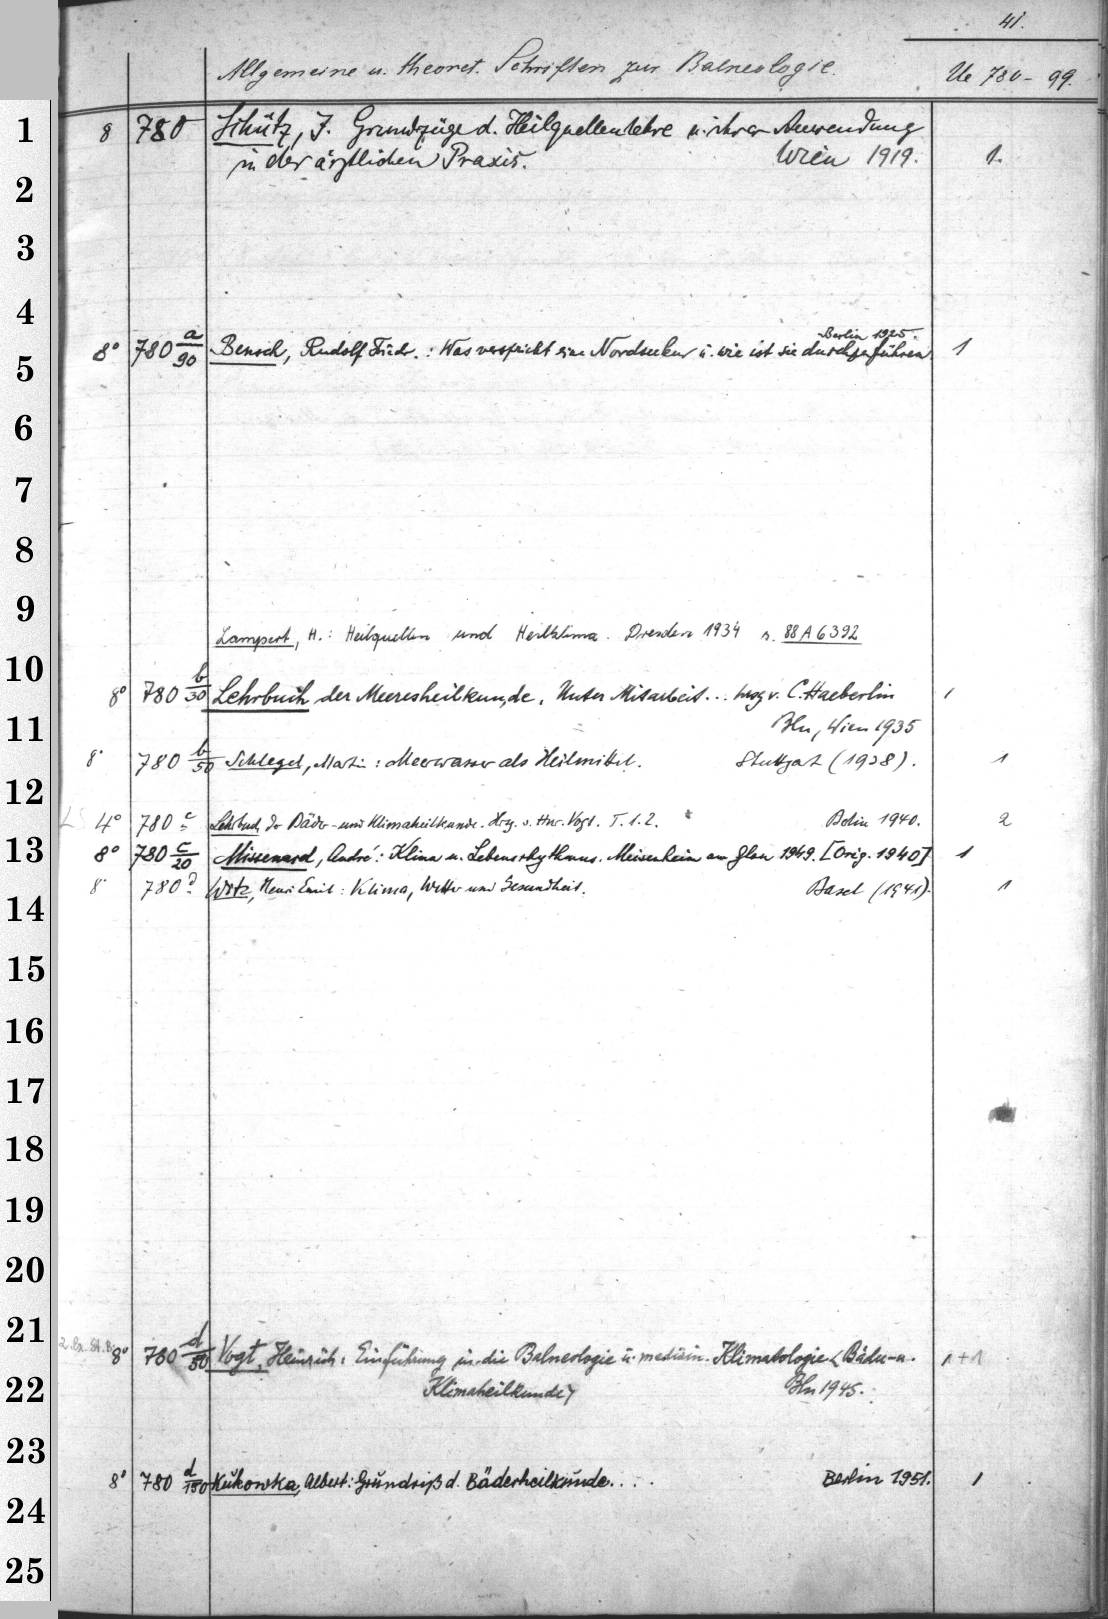 41.
Allgemeine u. theoret. Schriften zur Balneologie. Ue 780-99.
1
8 780 Schütz, J. Grundzüge d. Heilquellenlehre u. ihrer Anwendung
in der ärztlichen Praxis. Wien 1919. 1.
2
3
4
Berlin 1925.
8° 780 a/90 Bensch, Rudolf Friedr.: Was verspricht eine Nordseekur u. wie ist sie durchzuführen 1
5
6
7
8
9
Lampert, H.: Heilquellen und Heilklima. Dresden 1934 s. 88 A 6392
10
8° 780 b/30 Lehrbuch der Meeresheilkunde. Unter Mitarbeit... hrsg v. C. Haeberlin 1
11
Bln, Wien 1935
8° 780 b/50 Schlegel, Martin: Meerwasser als Heilmittel. Stuttgart (1928). 1
12
LS 4° 780 c Lehrbuch der Bäder- und Klimaheilkunde. Hrg. v. Hnr. Vogt. T. 1.2. Berlin 1940. 2
13
8° 780 c/20 Missenard, André: Klima u. Lebensrhythmus. Meisenheim am Glan 1949. [Orig. 1940] 1
8° 780 Henri Emil: Klima, Wetter und Gesundheit. Basel (1941). 1
14
15
16
17
18
19
20
21
8° 780 d/50 Vogt, Heinrich: Einführung in die Balneologie u. medizin. Klimatologie <Bäder- u. 1+1
22
Klimaheilkunde> Bln 1945.
23
8° 780 d/150 Kukowka, Albert: Grundriß d. Bäderheilkunde.... Berlin 1951. 1
24
25